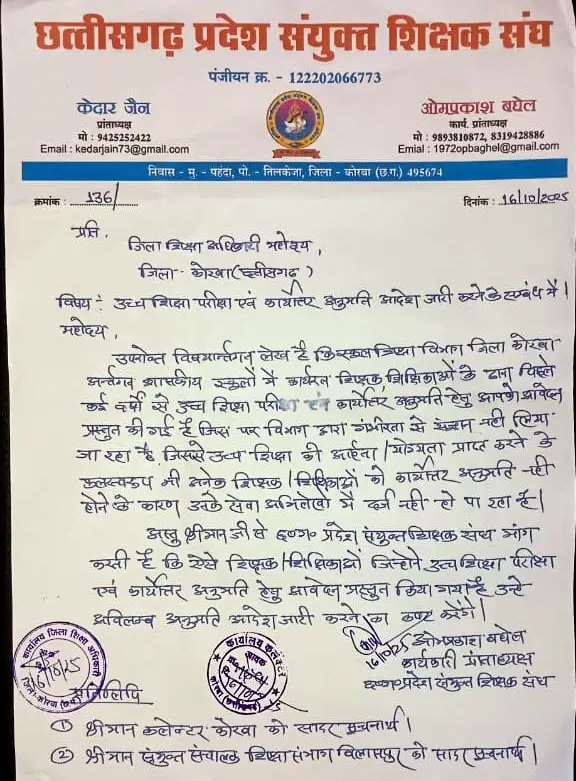 छत्तीसगढ़ प्रदेश संयुक्त शिक्षक संघ
पंजीयन क्र. - 122202066773
केदार जैन
प्रांताध्यक्ष
मो : 9425252422
Email : kedarjain73@gmail.com
ओमप्रकाश बघेल
कार्य. प्रांताध्यक्ष
मो : 9893810872, 8319428886
Emial : 1972opbaghel@gmail.com
निवास - मु. - पहंदा, पो. - तिलकेजा, जिला - कोरबा (छ.ग.) 495674
क्रमांक : 136/
दिनांक : 16/10/2025
प्रति,
जिला शिक्षा अधिकारी महोदय,
जिला - कोरबा (छत्तीसगढ़)
विषय : उच्च शिक्षा परीक्षा एवं कार्योत्तर अनुमति आदेश जारी करने के सम्बंध में।
महोदय,
उपरोक्त विषयान्तर्गत लेख है कि स्कूल शिक्षा विभाग जिला कोरबा
अर्न्तगत शासकीय स्कूलों में कार्यरत शिक्षक/शिक्षिकाओं के द्वारा पिछले
कई वर्षों से उच्च शिक्षा परीक्षा एवं कार्योत्तर अनुमति हेतु आपको आवेदन
प्रस्तुत की गई है जिस पर विभाग द्वारा गंभीरता से संज्ञान नही लिया
जा रहा है, जिससे उच्च शिक्षा की अर्हता/योग्यता प्राप्त करने के
फलस्वरूप भी अनेक शिक्षक/शिक्षिकाओं को कार्योत्तर अनुमति नही
होने के कारण उनके सेवा अभिलेखों में दर्ज नही हो पा रहा है।
अस्तु श्रीमान जी से छ०ग० प्रदेश संयुक्त शिक्षक संघ मांग
करती है कि ऐसे शिक्षक/शिक्षिकाओं जिन्होने उच्च शिक्षा परीक्षा
एवं कार्योत्तर अनुमति हेतु आवेदन प्रस्तुत किया गया है उन्हे
अविलम्ब अनुमति आदेश जारी करने का कष्ट करेंगे।
16/10/25
ओमप्रकाश बघेल
कार्यकारी प्रांताध्यक्ष
छ०ग० प्रदेश संयुक्त शिक्षक संघ
कार्यालय जिला शिक्षा अधिकारी
16/10/25
कार्यालय कलेक्टर
आवक
कोरबा (छत्तीसगढ़)
प्रतिलिपि
① श्रीमान कलेक्टर कोरबा को सादर सूचनार्थ।
② श्रीमान संयुक्त संचालक शिक्षा संभाग बिलासपुर को सादर सूचनार्थ।